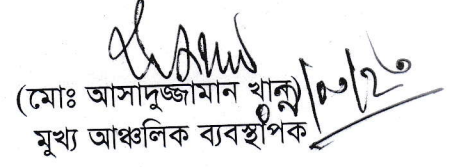 (মোঃ আসাদুজ্জামান খান)
মুখ্য আঞ্চলিক ব্যবস্থাপক